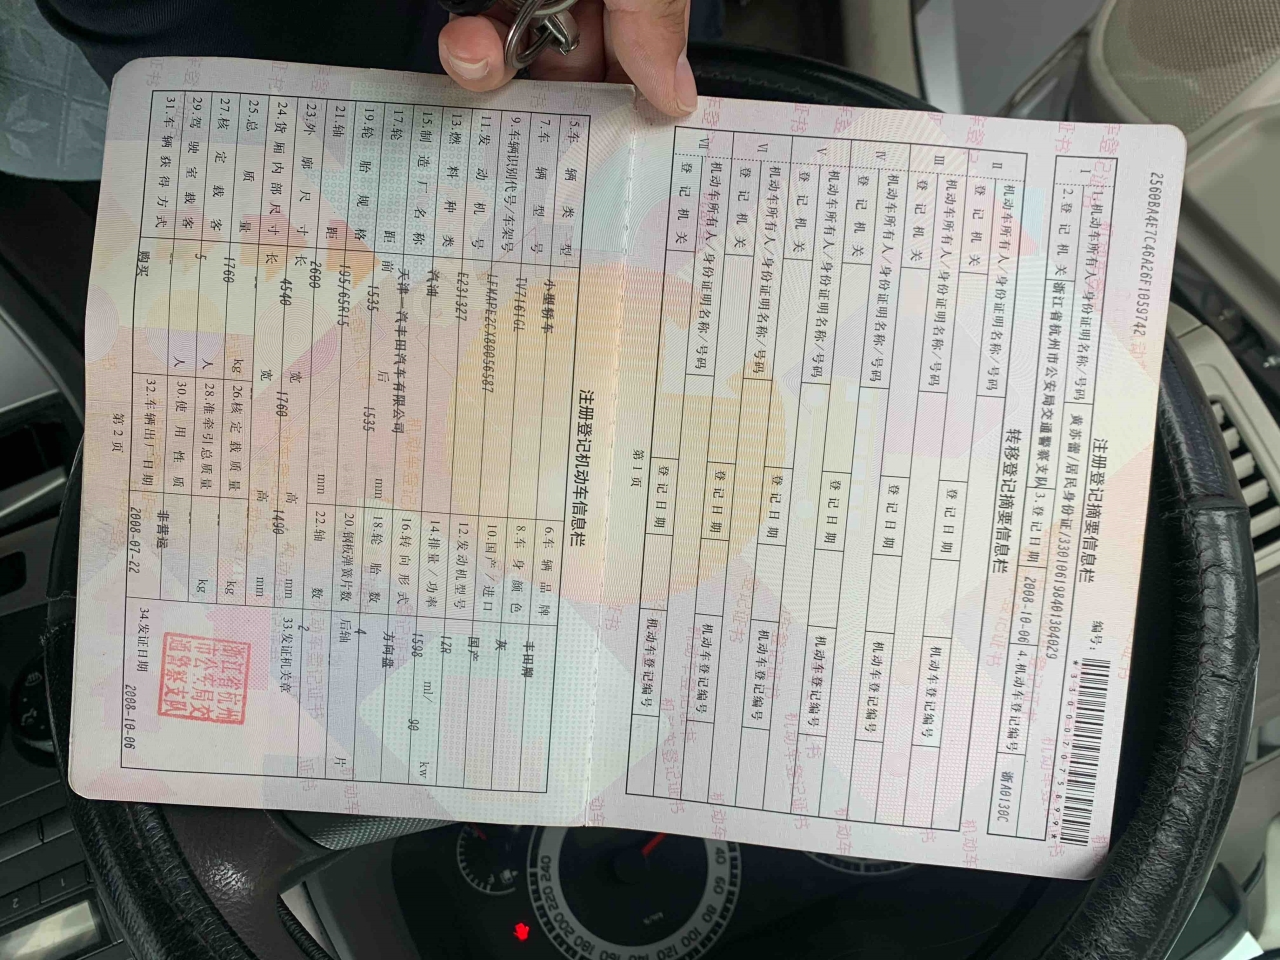 2560BA4E7C46A26F1059742
注册登记摘要信息栏
编号:
*330020758991*
I 1.机动车所有人/身份证明名称/号码 黄苏蕾/居民身份证/330106198401304029
2.登记机关 浙江省杭州市公安局交通警察支队 3.登记日期 2008-10-06 4.机动车登记编号 浙A0130C
转移登记摘要信息栏
II 机动车所有人/身份证明名称/号码
登记机关 登记日期 机动车登记编号
III 机动车所有人/身份证明名称/号码
登记机关 登记日期 机动车登记编号
IV 机动车所有人/身份证明名称/号码
登记机关 登记日期 机动车登记编号
V 机动车所有人/身份证明名称/号码
登记机关 登记日期 机动车登记编号
VI 机动车所有人/身份证明名称/号码
登记机关 登记日期 机动车登记编号
VII 机动车所有人/身份证明名称/号码
登记机关 登记日期 机动车登记编号
第 1 页
注册登记机动车信息栏
5.车辆类型 小型轿车 6.车辆品牌 丰田牌
7.车辆型号 TV7161GL 8.车身颜色 灰
9.车辆识别代号/车架号 LFMAPE2CX80056587 10.国产/进口 国产
11.发动机号 E231327 12.发动机型号 1ZR
13.燃料种类 汽油 14.排量/功率 1598 ml/ 90 kw
15.制造厂名称 天津一汽丰田汽车有限公司 16.转向形式 方向盘
17.轮距 前 1535 后 1535 mm 18.轮胎数 4
19.轮胎规格 195/65R15 20.钢板弹簧片数 后轴 片
21.轴距 2600 mm 22.轴数 2
23.外廓尺寸 长 4540 宽 1760 高 1490 mm 33.发证机关章
24.货厢内部尺寸 长 宽 高 mm
25.总质量 1760 kg 26.核定载质量 kg
27.核定载客 5 人 28.准牵引总质量 kg
29.驾驶室载客 人 30.使用性质 非营运
31.车辆获得方式 购买 32.车辆出厂日期 2008-07-22 34.发证日期 2008-10-06
浙江省杭州
市公安局交
通警察支队
第 2 页
40
60
80
100
120
160
180
200
220
240
km/h